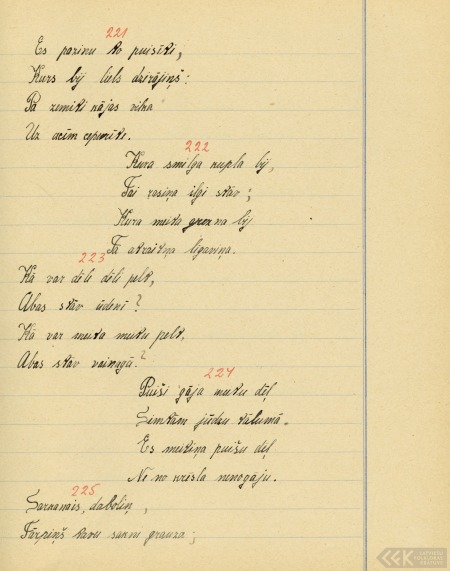 221
Es pazinu to puisīti,
Kurs bij liels dzērājiņš:
Pa zemīti kājas vilka
Uz acīm cepurīte.
222
Kura smilga kupla bij,
Tai rasiņa ilgi stāv;
Kura meita grezna bij
Tā atraitņa līgaviņa.
223
Kā var dēli dēli pelt,
Abas stāv ūdenī?
Kā var meita meitu pelt,
Abas stāv vainagā?
224
Puiši gāja meitu dēļ
Simtām jūdžu tālumā.
Es meitiņa puišu dēļ
Ne no krēsla nenogāju.
225
Sarkanais, dābolin,
Tārpiņš tavu sakni grauza;
LATVIEŠU
FOLKLORAS
KRĀTUVE